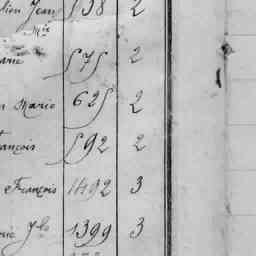 lien Jean 538 2
Mie
arie 575 2
n Marie 625 2
ançois 592 2
François 1492 3
rie Jh 1399 3